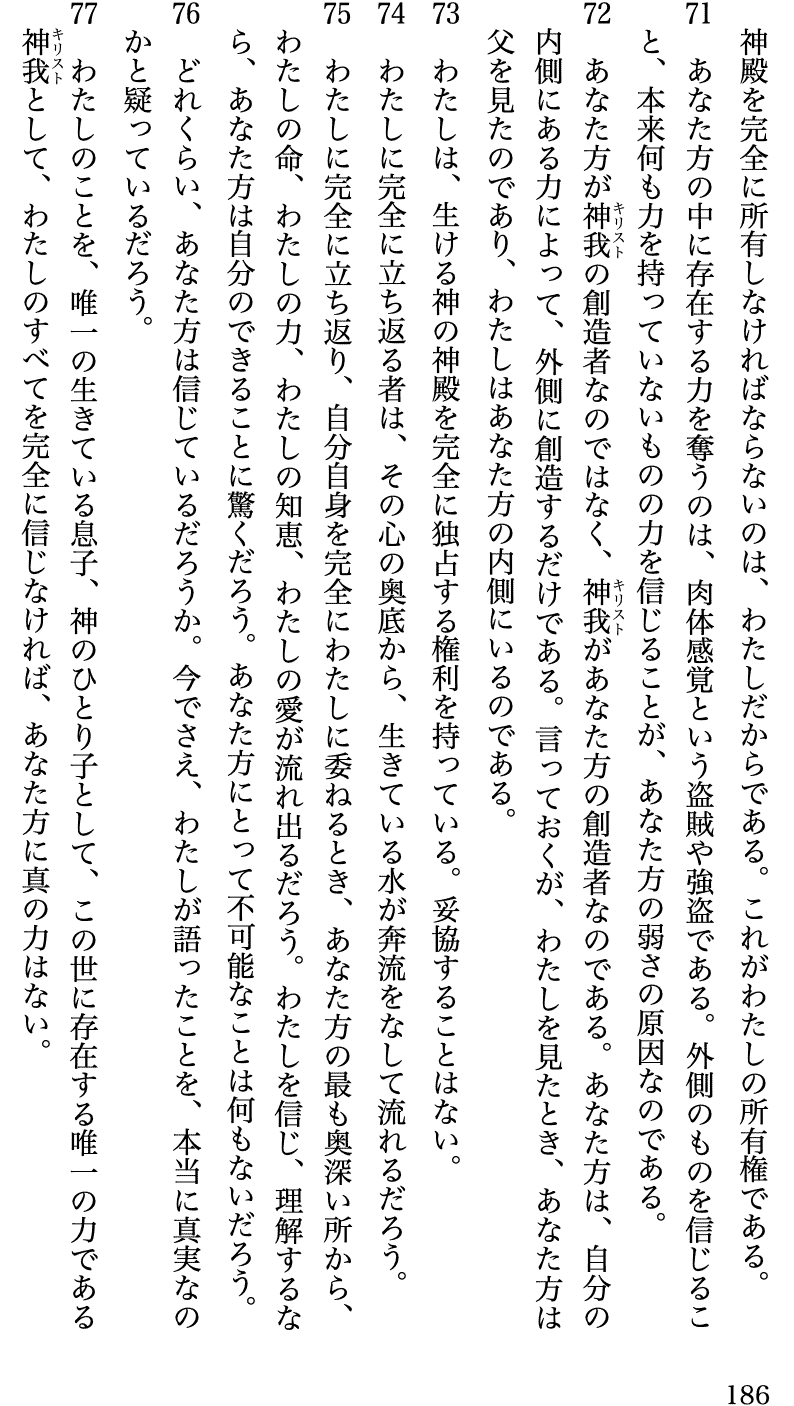 神殿を完全に所有しなければならないのは、わたしだからである。これがわたしの所有権である。
71 あなた方の中に存在する力を奪うのは、肉体感覚という盗賊や強盗である。外側のものを信じるこ
と、本来何も力を持っていないものの力を信じることが、あなた方の弱さの原因なのである。
72 あなた方が神我キリストの創造者なのではなく、神我キリストがあなた方の創造者なのである。あなた方は、自分の
内側にある力によって、外側に創造するだけである。言っておくが、わたしを見たとき、あなた方は
父を見たのであり、わたしはあなた方の内側にいるのである。
73 わたしは、生ける神の神殿を完全に独占する権利を持っている。妥協することはない。
74 わたしに完全に立ち返る者は、その心の奥底から、生きている水が奔流をなして流れるだろう。
75 わたしに完全に立ち返り、自分自身を完全にわたしに委ねるとき、あなた方の最も奥深い所から、
わたしの命、わたしの力、わたしの知恵、わたしの愛が流れ出るだろう。わたしを信じ、理解するな
ら、あなた方は自分のできることに驚くだろう。あなた方にとって不可能なことは何もないだろう。
76 どれくらい、あなた方は信じているだろうか。今でさえ、わたしが語ったことを、本当に真実なの
かと疑っているだろう。
77 わたしのことを、唯一の生きている息子、神のひとり子として、この世に存在する唯一の力である
神我キリストとして、わたしのすべてを完全に信じなければ、あなた方に真の力はない。
186